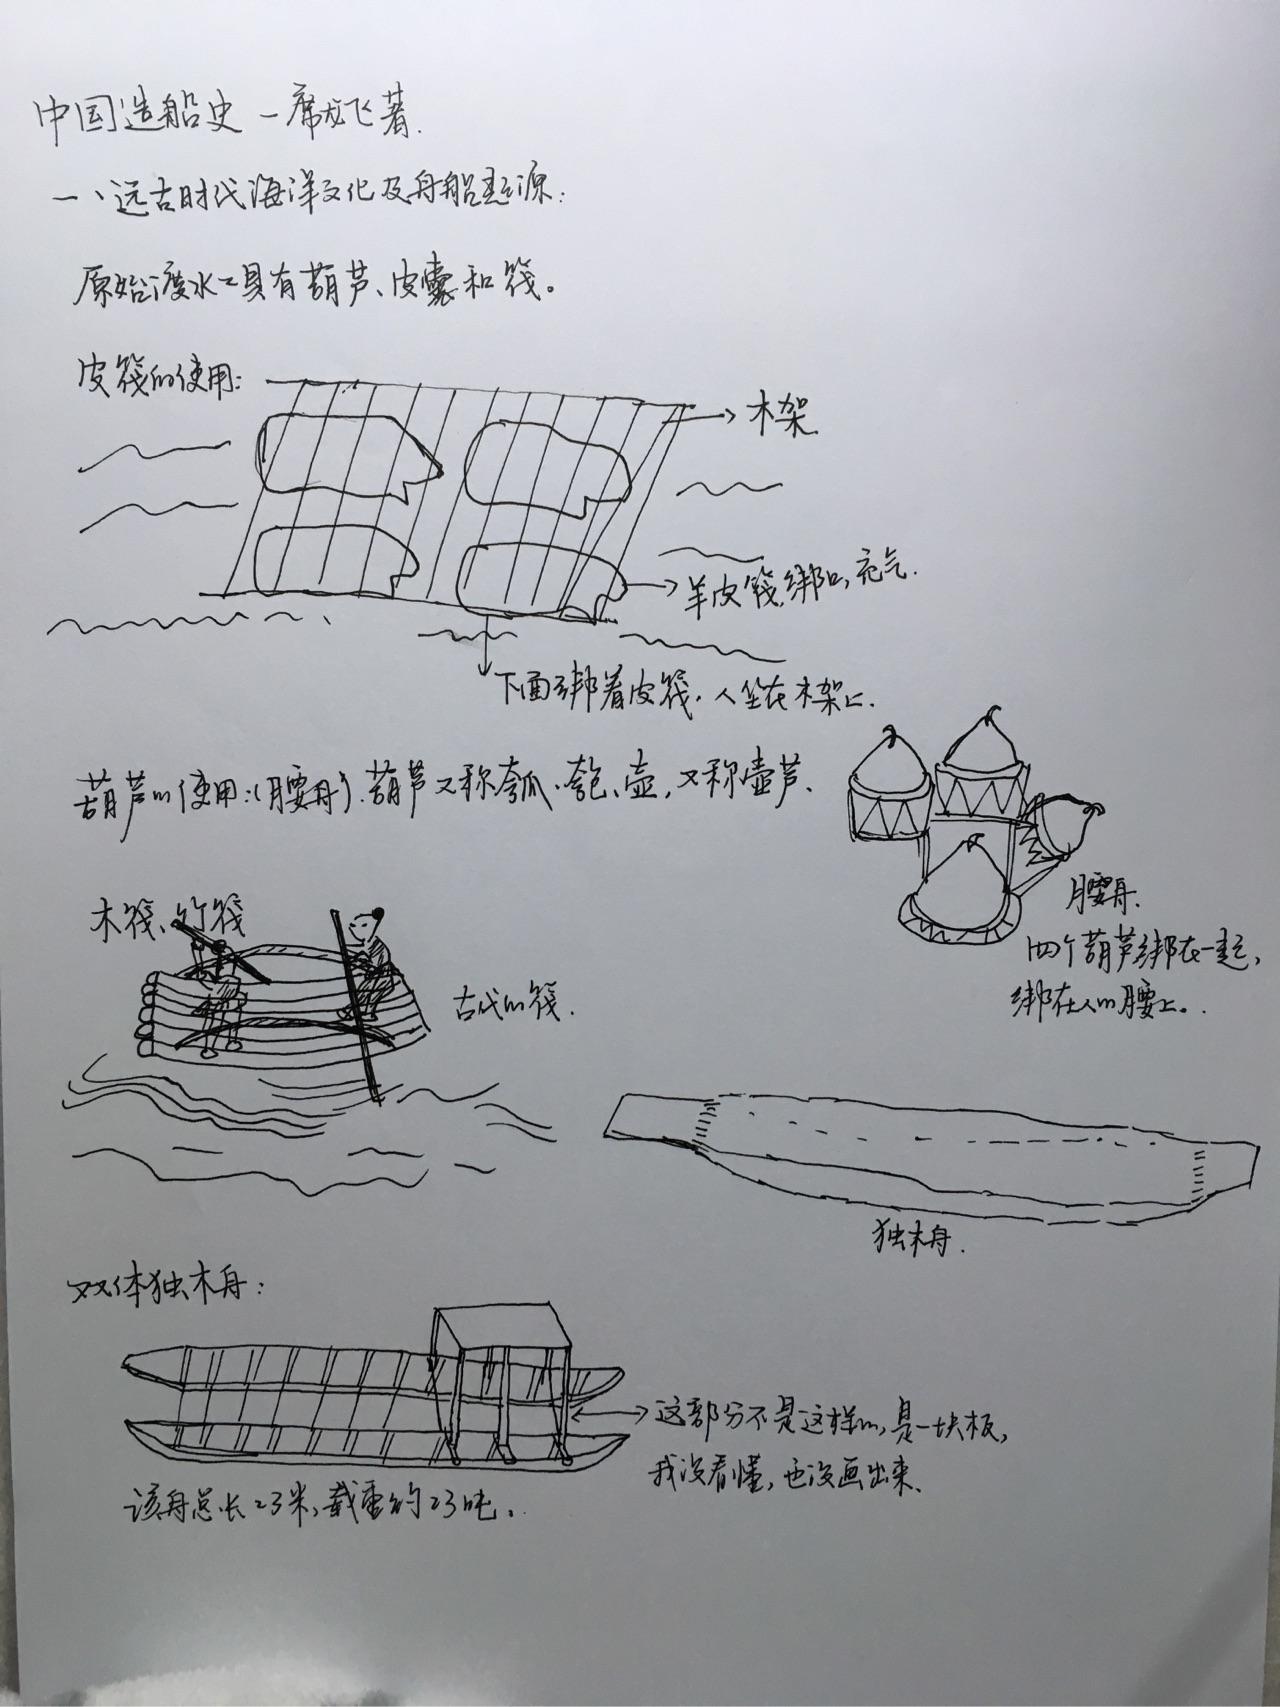 中国造船史 — 席龙飞著.
一、远古时代海洋文化及舟船起源:
原始渡水工具有葫芦、皮囊和筏。
皮筏的使用:
木架
羊皮筏,绑口,充气.
下面绑着皮筏.人坐在木架上.
葫芦的使用:(腰舟).葫芦又称瓠瓜、匏、壶,又称壶芦.
腰舟.
四个葫芦绑在一起,
绑在人的腰上。
木筏、竹筏
古代的筏.
独木舟.
双体独木舟:
这部分不是这样的,是一块板,
我没看懂,也没画出来.
该舟总长23米,载重约23吨。